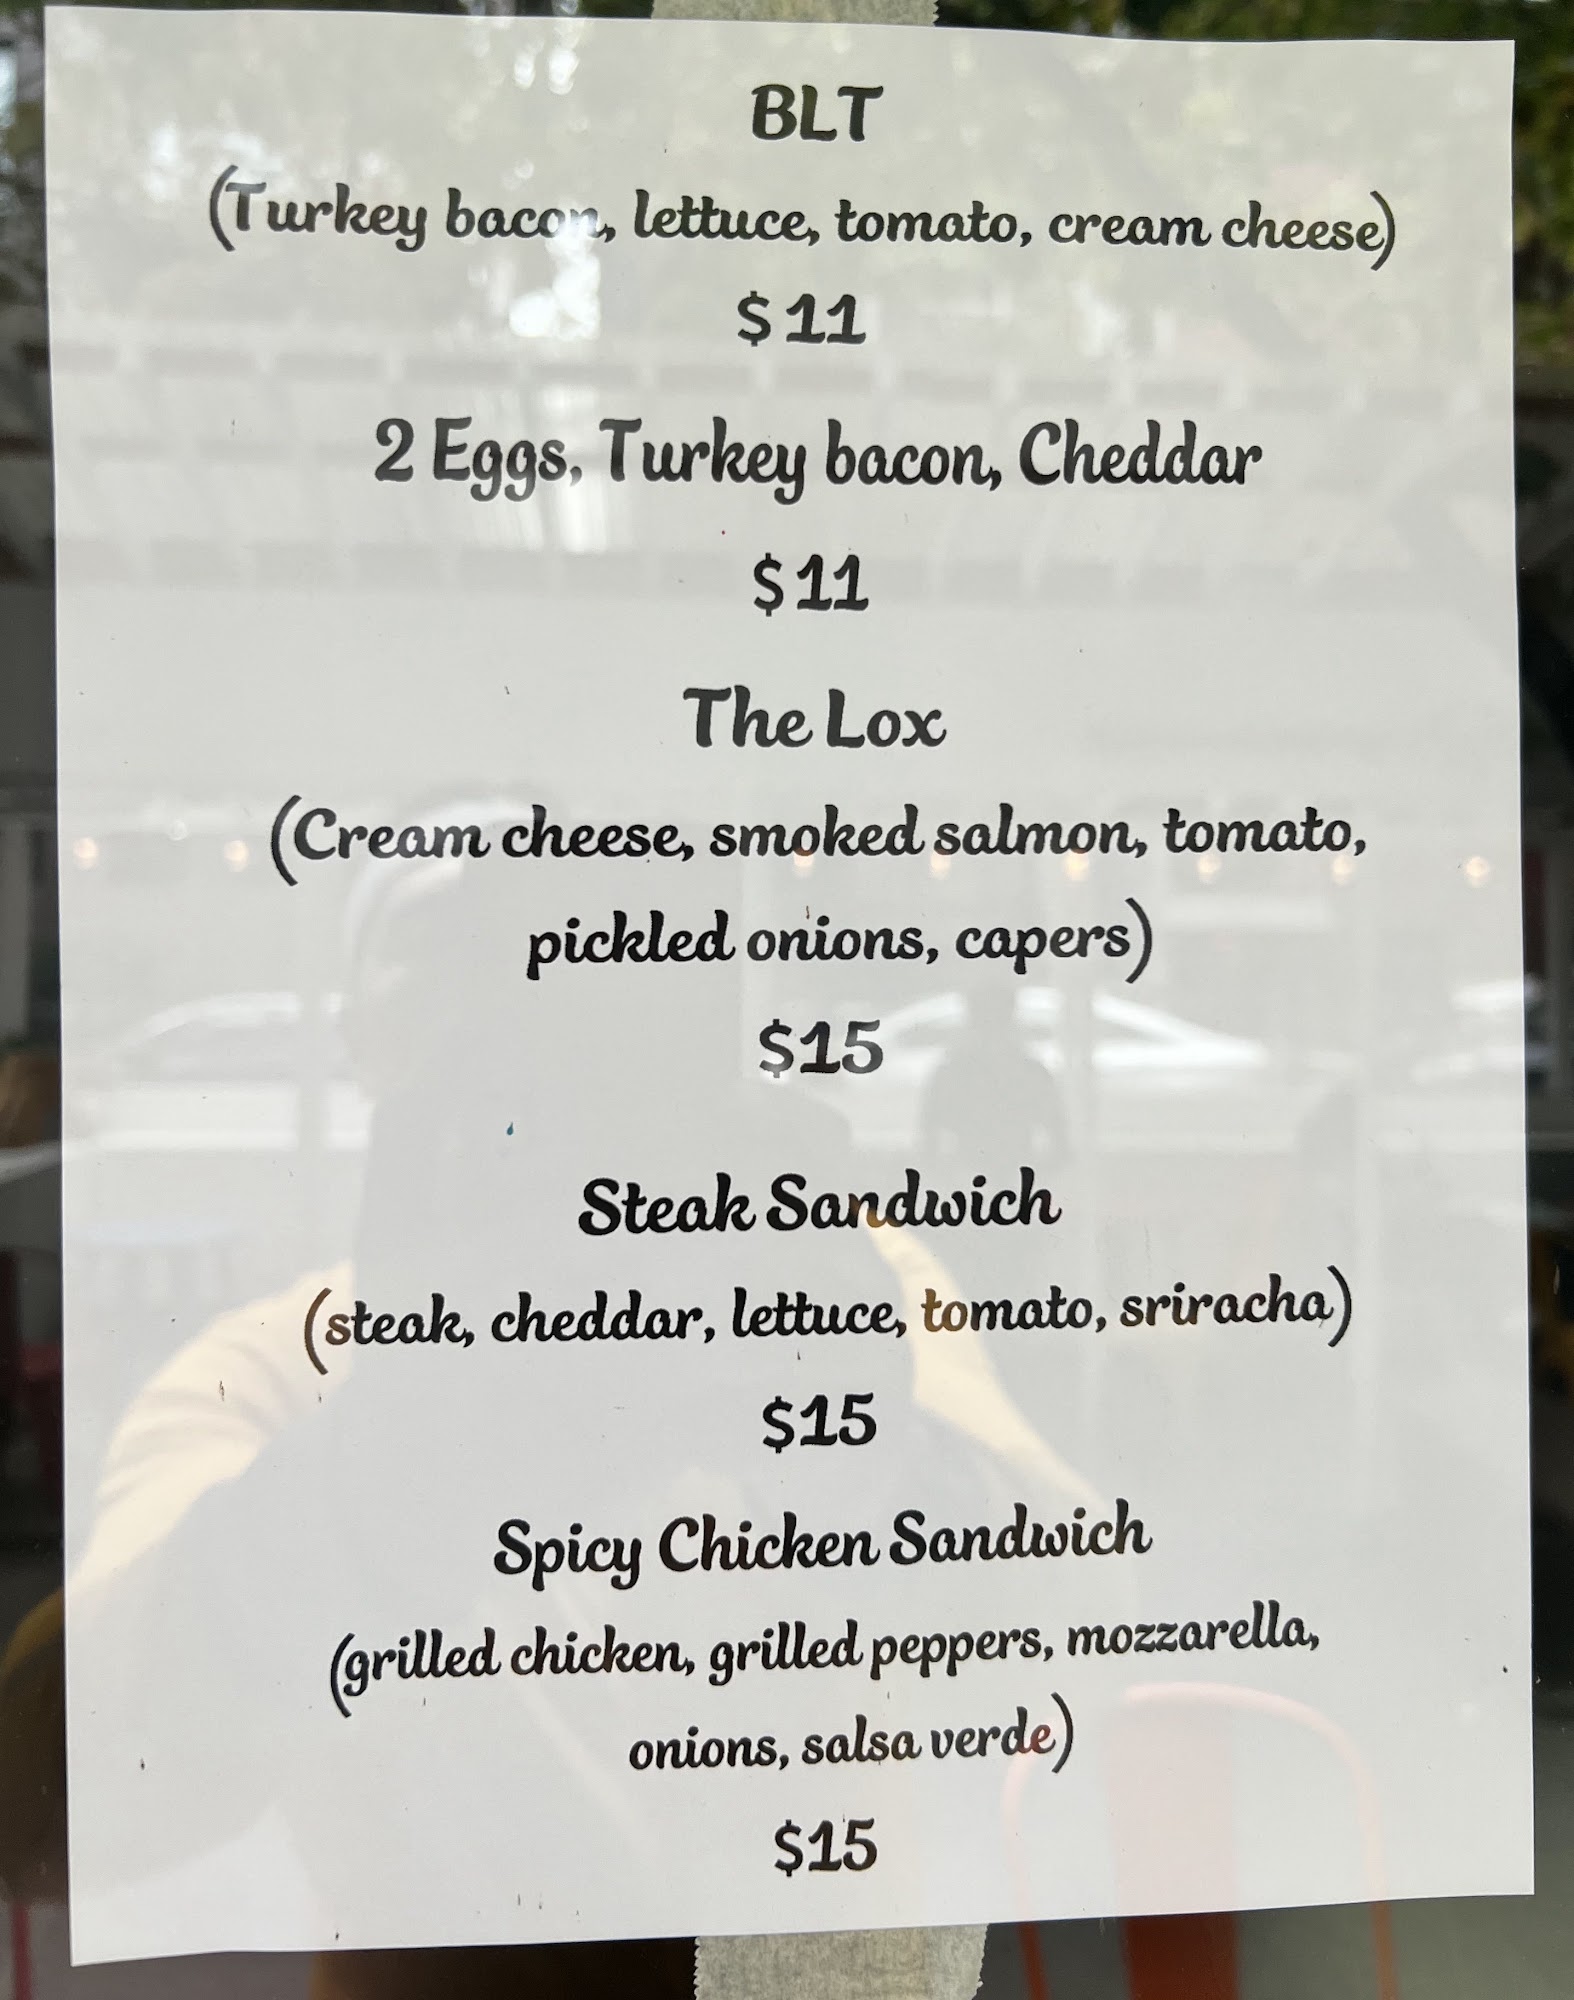 BLT
(Turkey bacon, lettuce, tomato, cream cheese)
$11
2 Eggs, Turkey bacon, Cheddar
$11
The Lox
(Cream cheese, smoked salmon, tomato,
pickled onions, capers)
$15
Steak Sandwich
(steak, cheddar, lettuce, tomato, sriracha)
$15
Spicy Chicken Sandwich
(grilled chicken, grilled peppers, mozzarella,
onions, salsa verde)
$15